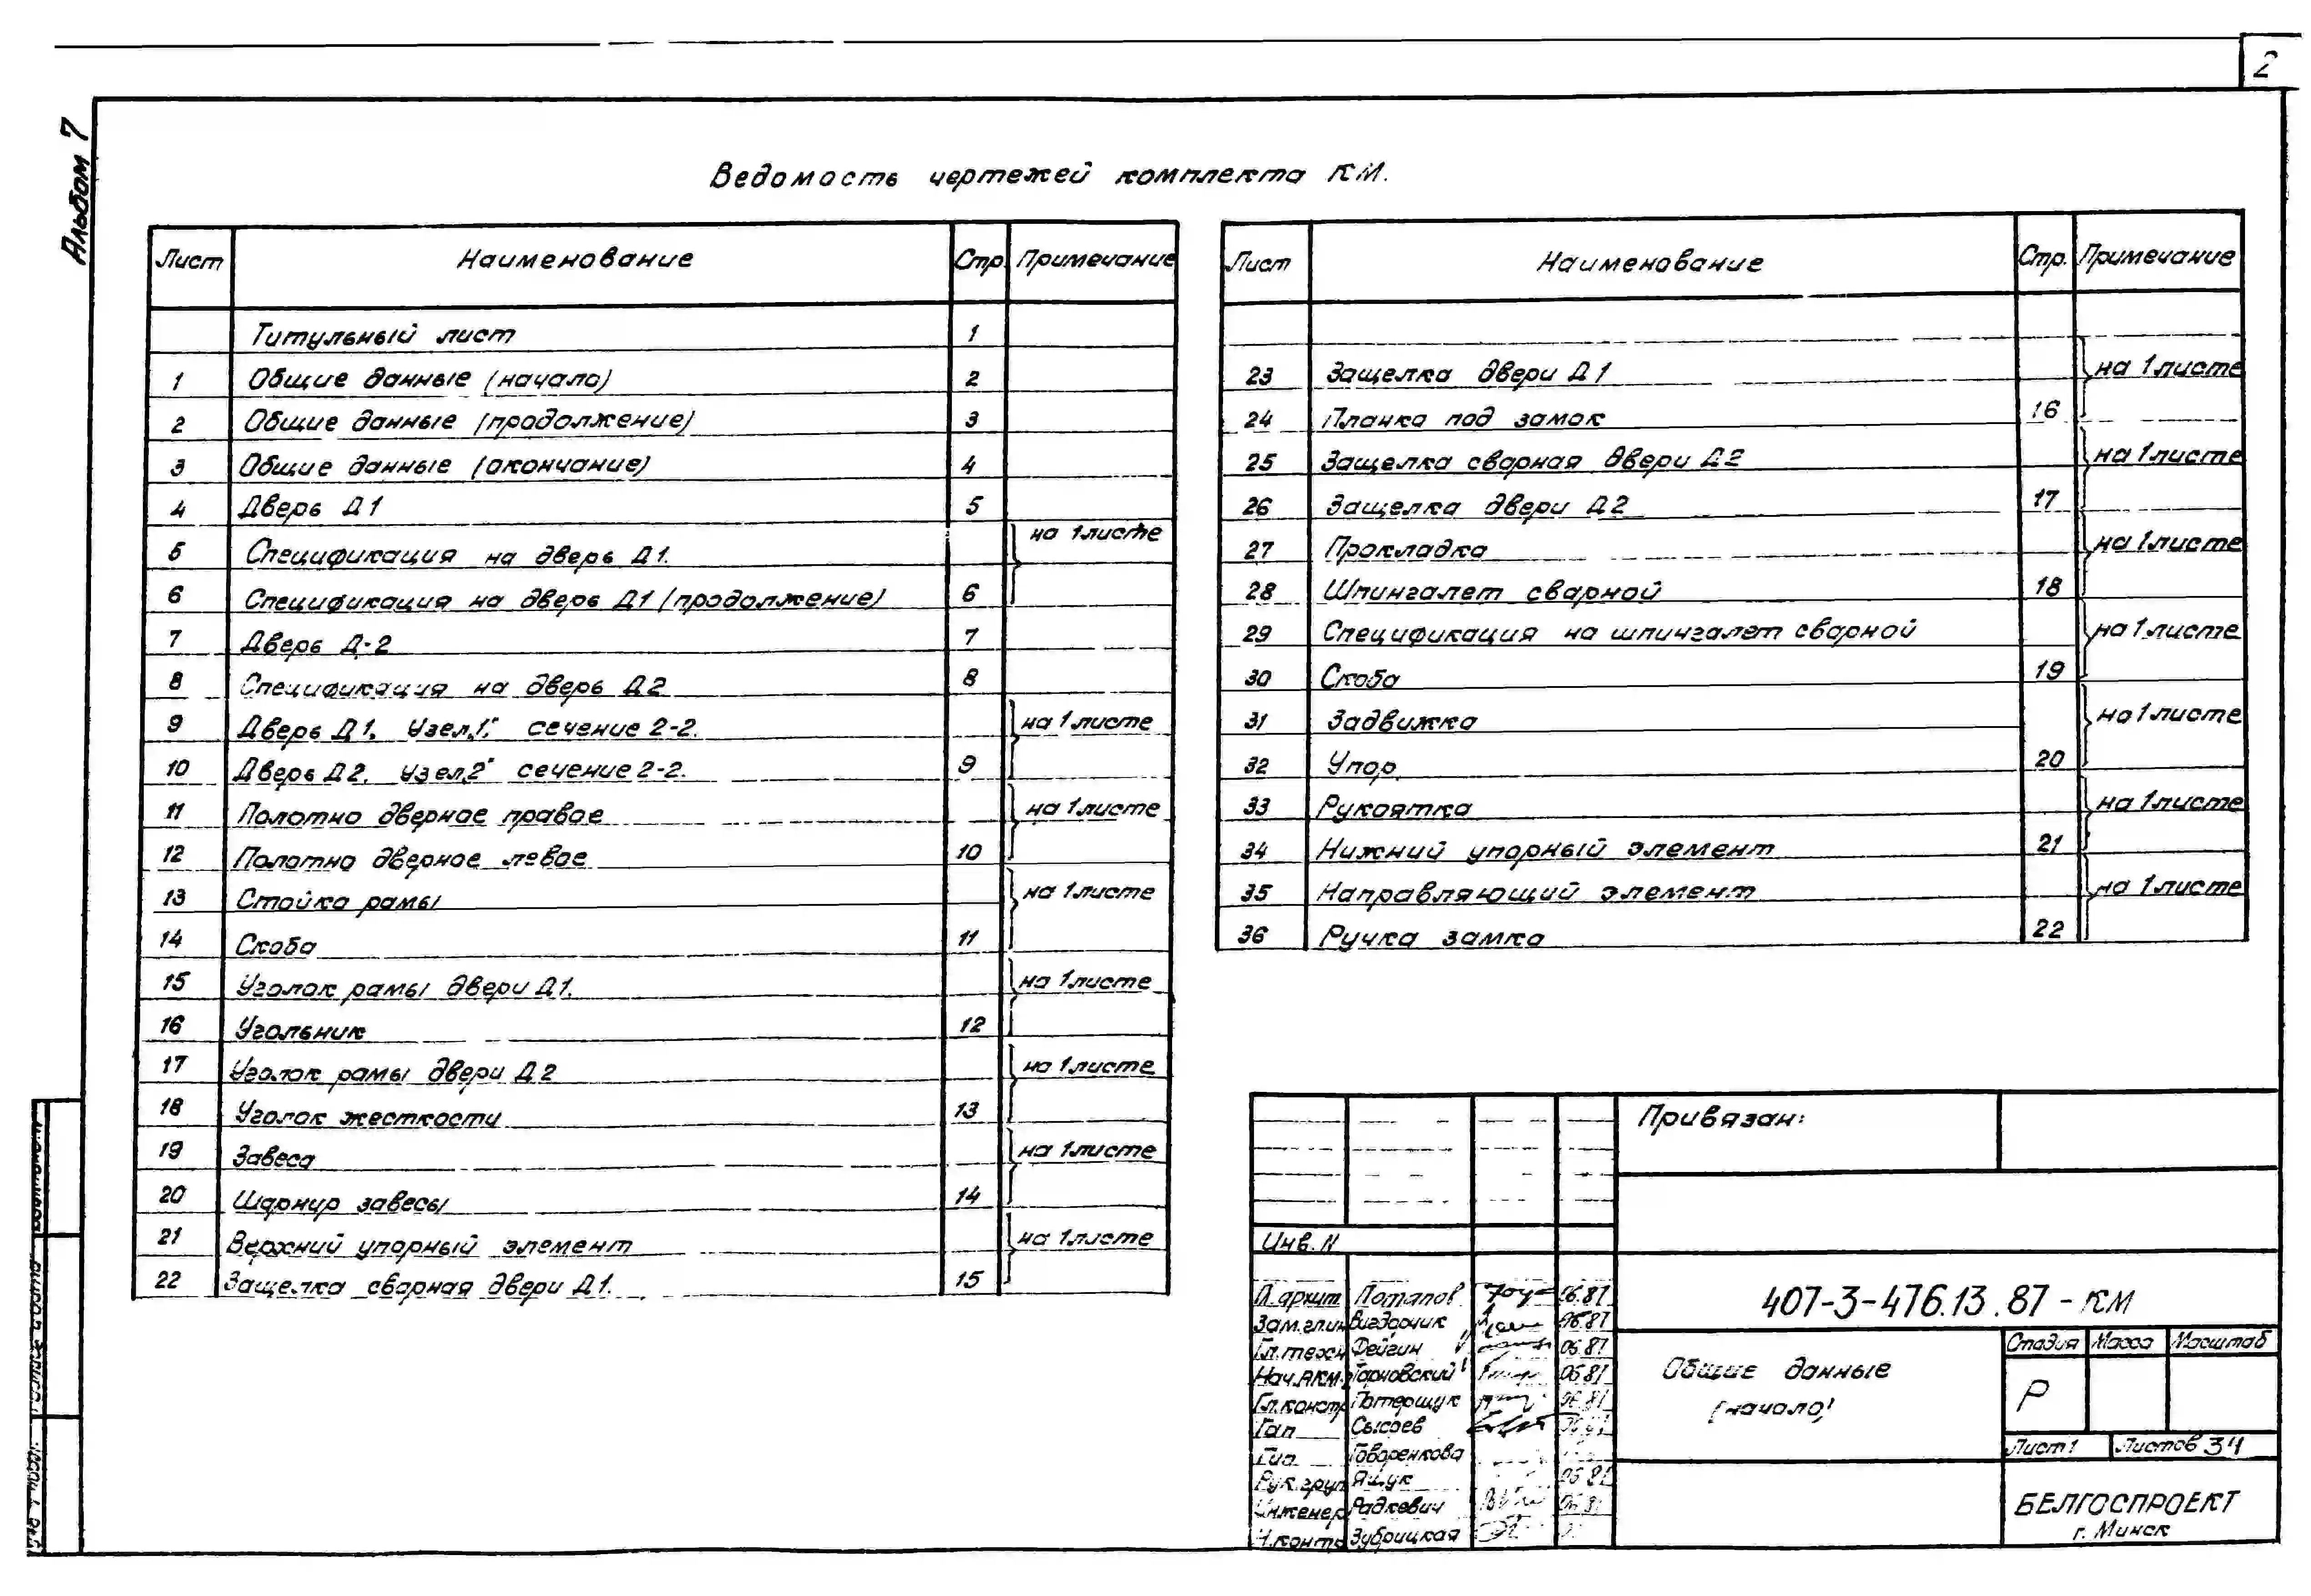 2
Альбом 7
Ведомость чертежей комплекта КМ.
Лист Наименование Стр. Примечание
Титульный лист 1
1 Общие данные (начало) 2
2 Общие данные (продолжение) 3
3 Общие данные (окончание) 4
4 Дверь Д1 5
5 Спецификация на дверь Д1. на 1 листе
6 Спецификация на дверь Д1 (продолжение) 6
7 Дверь Д-2 7
8 Спецификация на дверь Д2 8
9 Дверь Д1. Узел „1" сечение 2-2. на 1 листе
10 Дверь Д2. Узел „2" сечение 2-2. 9
11 Полотно дверное правое на 1 листе
12 Полотно дверное левое 10
13 Стойка рамы на 1 листе
14 Скоба 11
15 Уголок рамы двери Д1. на 1 листе
16 Угольник 12
17 Уголок рамы двери Д2 на 1 листе
18 Уголок жесткости 13
19 Завеса на 1 листе
20 Шарнир завесы 14
21 Верхний упорный элемент на 1 листе
22 Защелка сварная двери Д1. 15
Лист Наименование Стр. Примечание
23 Защелка двери Д1 на 1 листе
24 Планка под замок 16
25 Защелка сварная двери Д2 на 1 листе
26 Защелка двери Д2 17
27 Прокладка на 1 листе
28 Шпингалет сварной 18
29 Спецификация на шпингалет сварной на 1 листе
30 Скоба 19
31 Задвижка на 1 листе
32 Упор 20
33 Рукоятка на 1 листе
34 Нижний упорный элемент 21
35 Направляющий элемент на 1 листе
36 Ручка замка 22
Привязан:
Инв. N
Гл. архит. Потапов 06.87
Зам.гл.ин 06.87
Гл.техн Фейгин 06.87
Нач.АКМ-2 Тарновский 06.87
Гл.констр Потерщук 06.87
Гап Сысоев
Гип Говоренкова
Рук.груп Ящук 06.87
Инженер Радкевич
Н.контр Зубрицкая
407-3-476.13.87-КМ
Общие данные
(начало)
Стадия Масса Масштаб
Р
Лист 1 Листов 34
БЕЛГОСПРОЕКТ
г. Минск